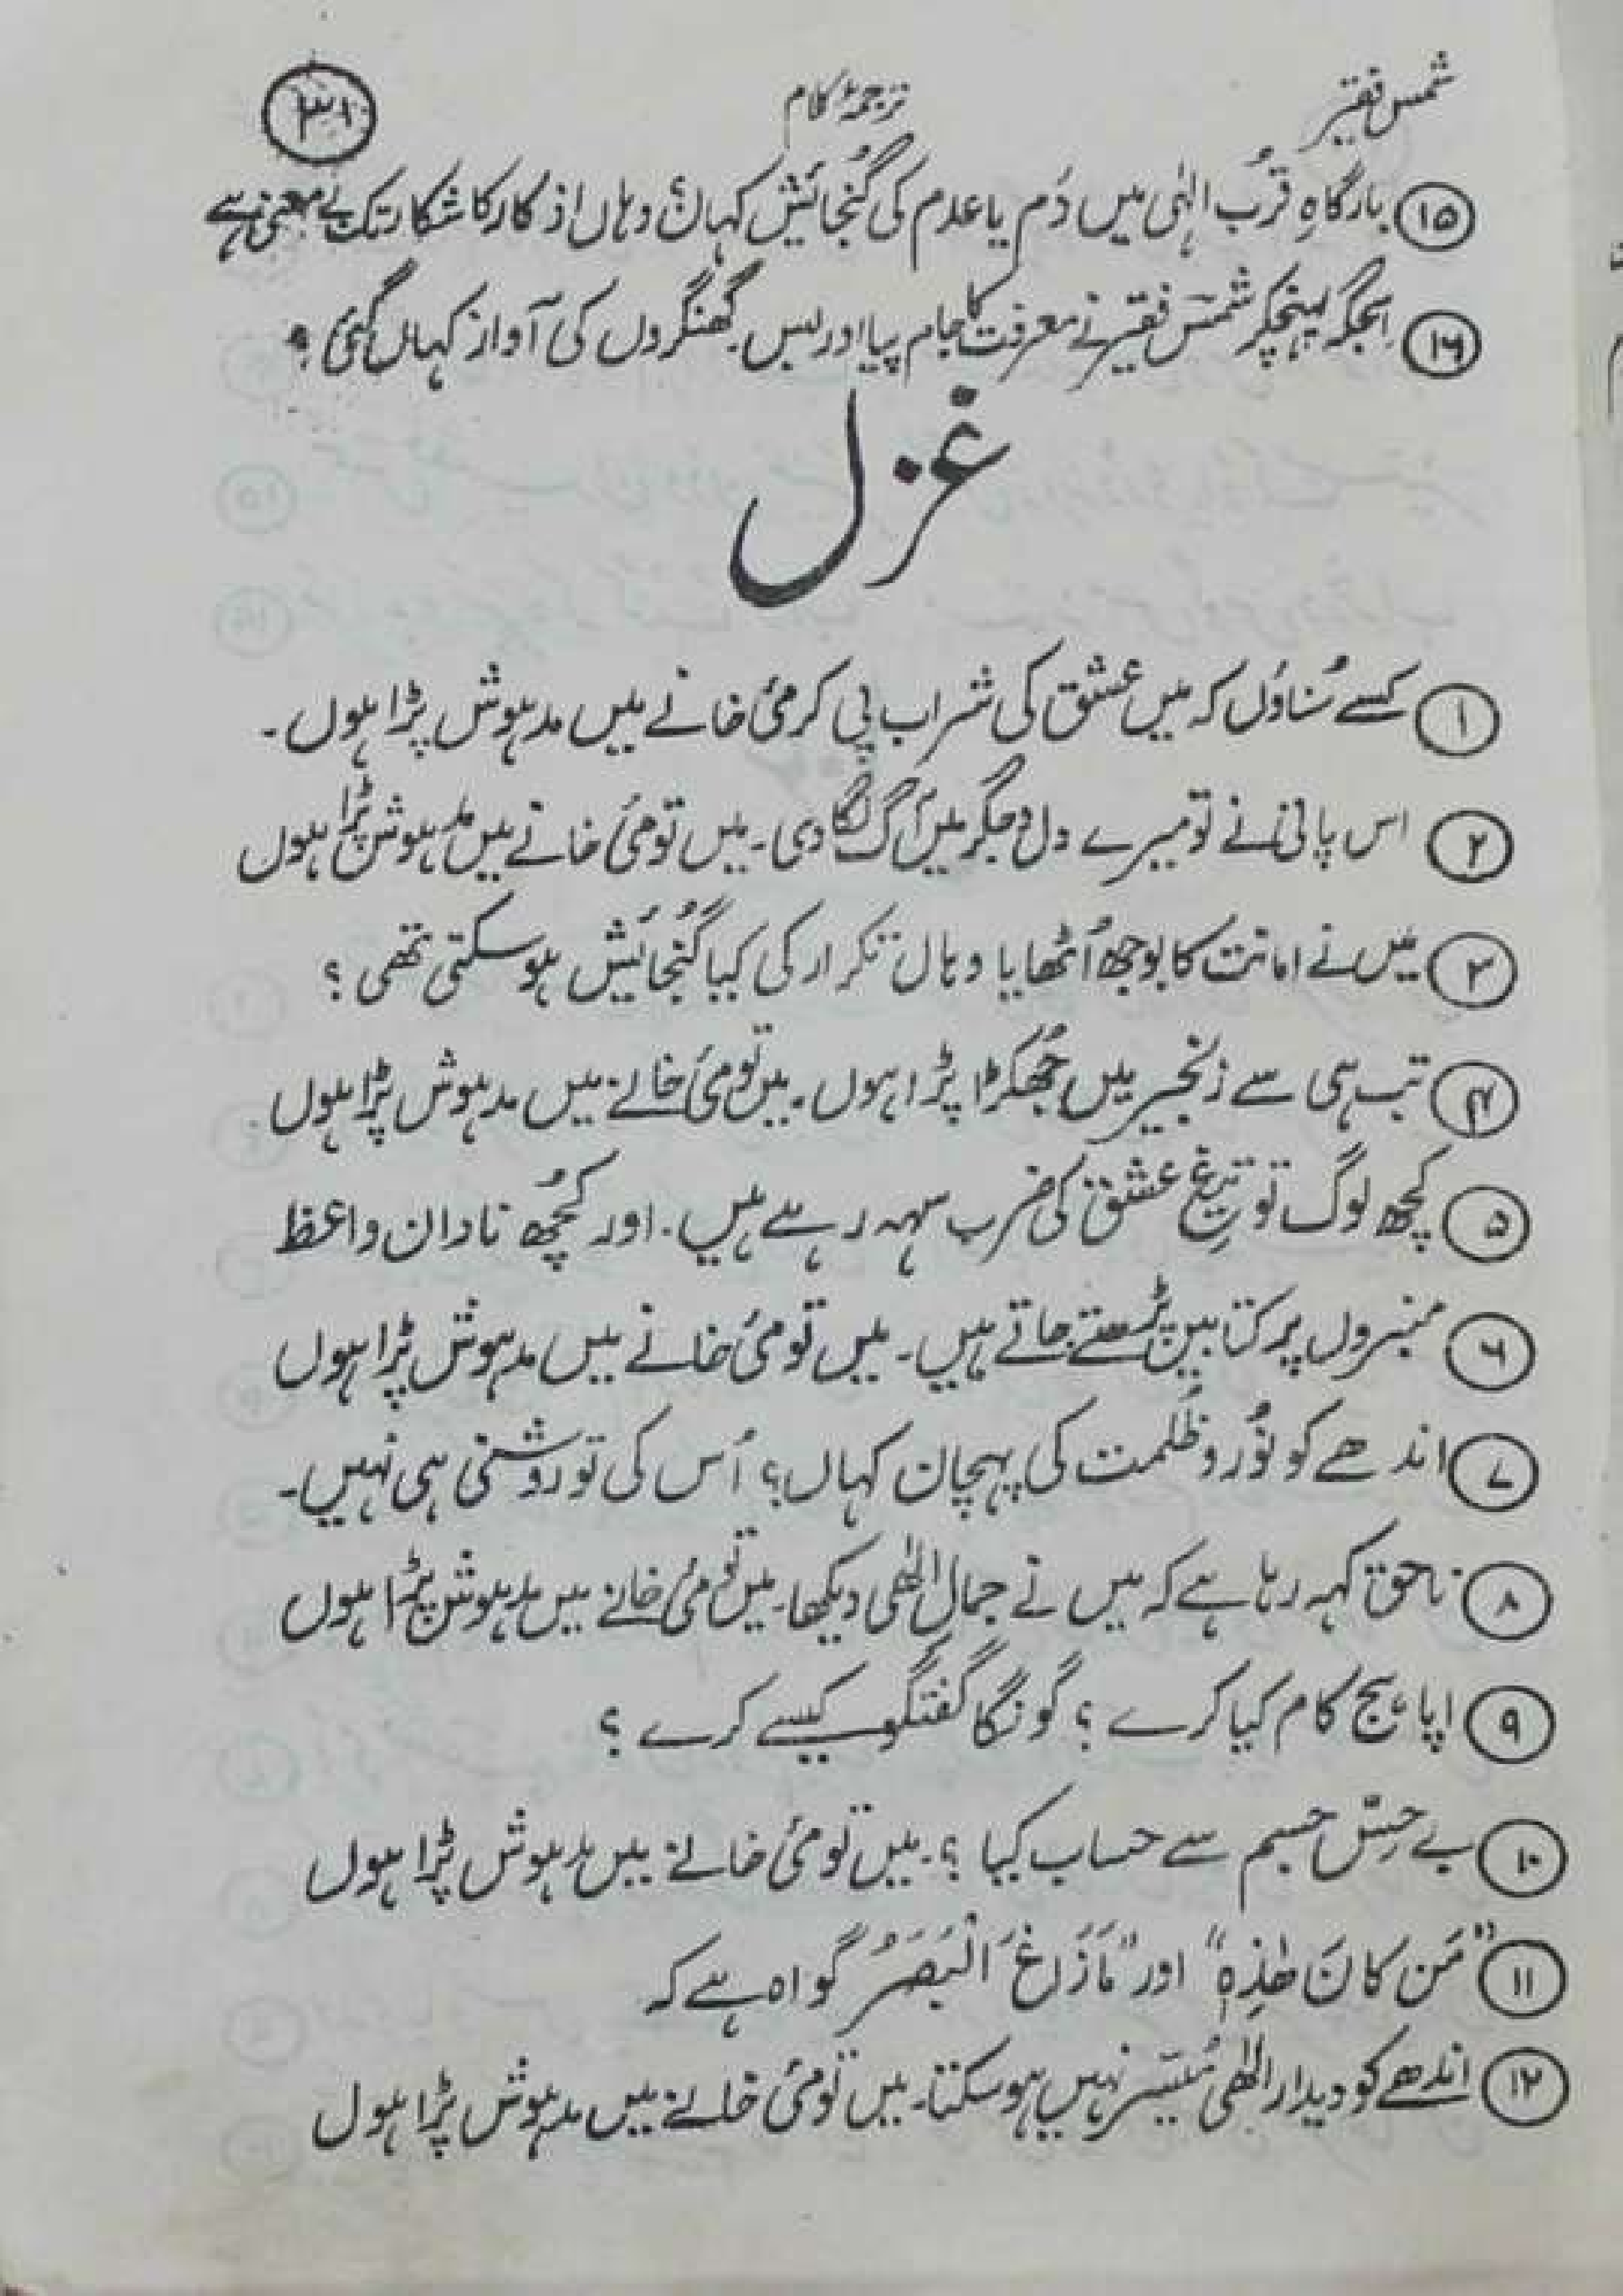 شمس فقیر
ترجمۂ کلام
۳۱۰
۱۵ بارگاہِ قرُب الہٰی میں دَم یا عدم کی گُنجائش کہاں؟ وہاں اذکار کا شکار تک بے معنیٰ ہے
۱۶ اِسجگہ پہنچکر شمسؔ فقیر نے معرفت کا جام پیا اور بس۔ گھنگروں کی آواز کہاں گئی؟
غزل
۱ کسے سُناوَں کہ میں عشق کی شراب پی کر مئ خانے میں مدہوش پڑا ہوں۔
۲ اس پانی نے تو میرے دل و جگر میں آگ لگا دی۔ میں تو مئ خانے میں مدہوش پڑا ہوں
۳ میں نے امانت کا بوجھ اُٹھایا وہاں تکرار کی کیا گُنجائش ہو سکتی تھی؟
۴ تب ہی سے زنجیر میں جُھکڑا پڑا ہوں۔ میں تو مئ خانے میں مدہوش پڑا ہوں
۵ کچھ لوگ تو تیغِ عشق کی ضرب سہہ رہے ہیں۔ اور کُچھ نادان واعظ
۶ منبروں پر کتابیں پڑھتے جاتے ہیں۔ میں تو مئ خانے میں مدہوش پڑا ہوں
۷ اندھے کو نُور و ظُلمت کی پہچان کہاں؟ اُس کی تو روشنی ہی نہیں۔
۸ ناحق کہہ رہا ہے کہ میں نے جمالِ الٰھی دیکھا۔ میں تو مئ خانے میں مدہوش پڑا ہوں
۹ اپاہج کام کیا کرے؟ گونگا گفتگو کیسے کرے؟
۱۰ بے حِسّ جسم سے حساب کیا؟۔ میں تو مئ خانے میں مدہوش پڑا ہوں
۱۱ "مَن کانَ ھٰذِہٖ" اور "مَازَاغَ الْبَصَرُ گواہ ہے کہ
۱۲ اندھے کو دیدارِ الٰھی مُیسّر نہیں ہو سکتا۔ میں تو مئ خانے میں مدہوش پڑا ہوں